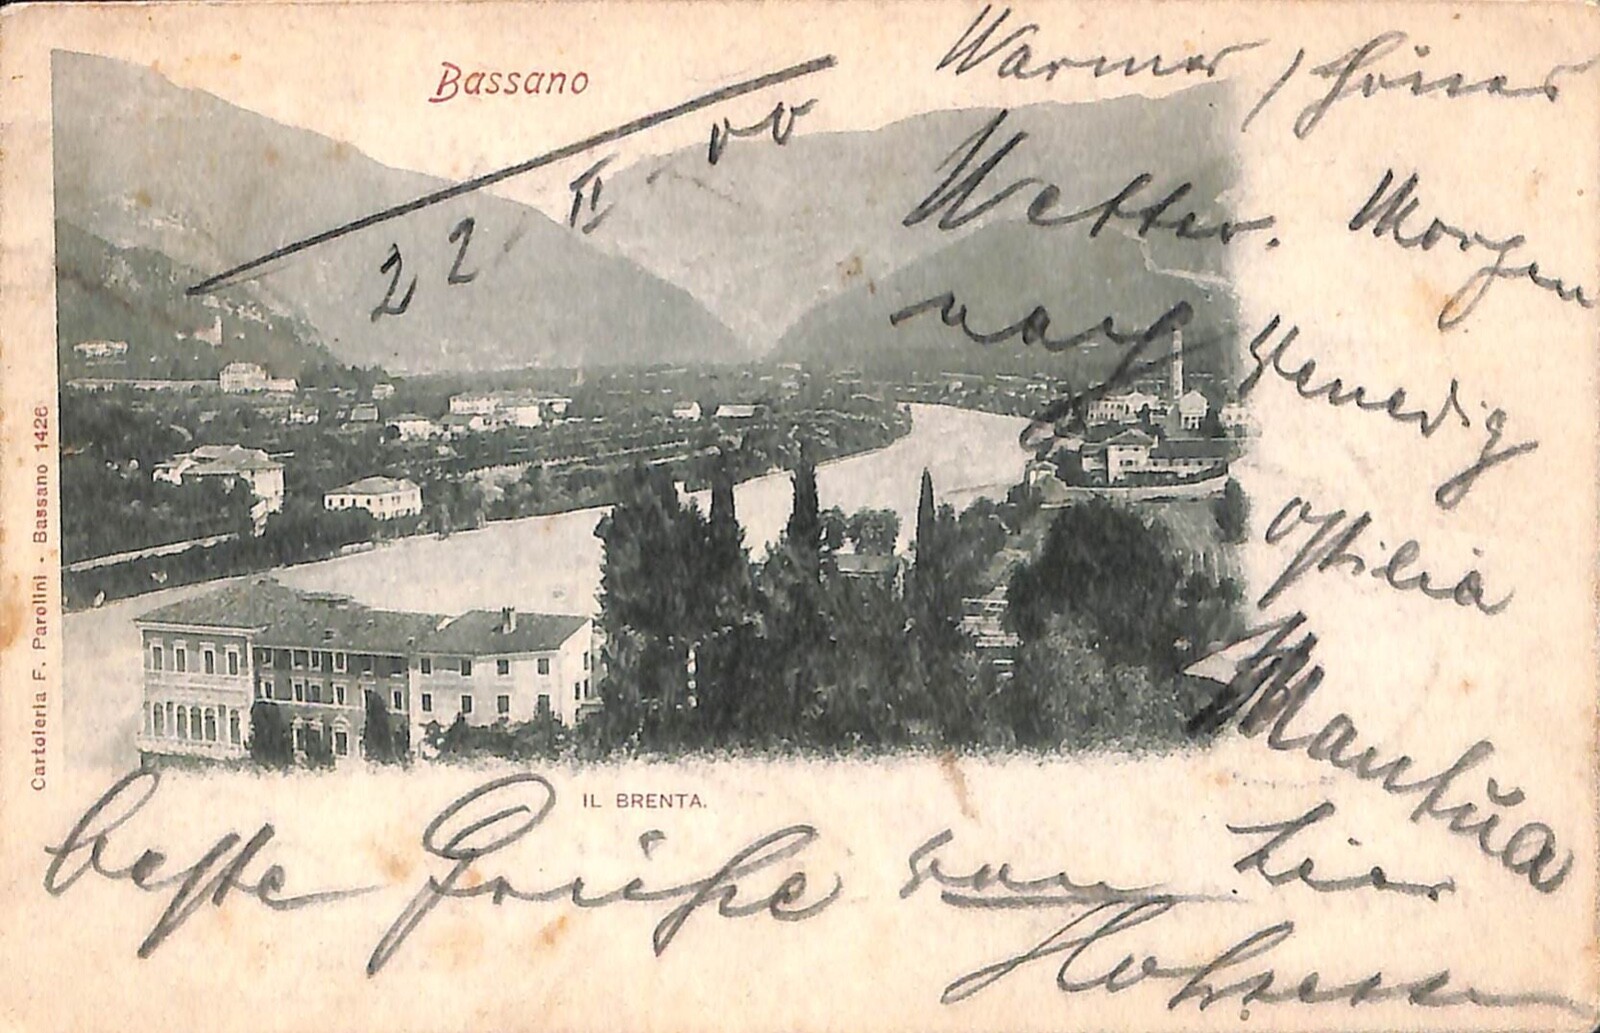 Bassano
22 / II - 00
Warmes, schönes
Wetter. Morgen
nach Venedig
Ostilia
Mantua
beste Grüße von hier
IL BRENTA.
Cartoleria F. Parolini - Bassano 1426